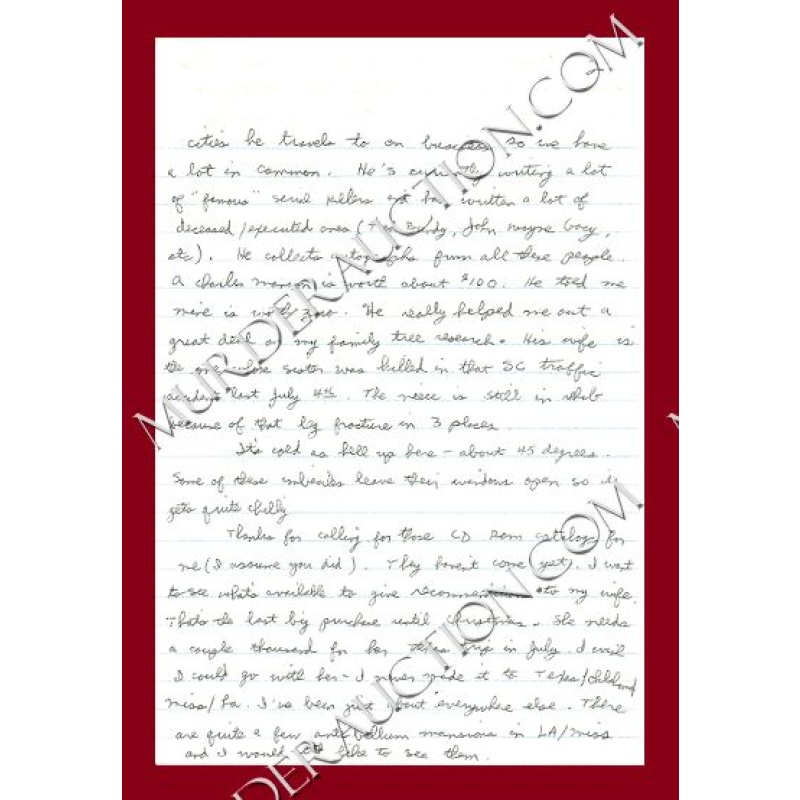 2
cities he travels to on business so we have
a lot in common. He's currently writing a lot
of "famous" serial killers and has written a lot of
deceased/executed ones (Ted Bundy, John Wayne Gacy,
etc). He collects autographs from all these people.
A Charles Manson is worth about $100. He told me
mine is worth 300. He really helped me out a
great deal on my family tree research. His wife is
the one whose sister was killed in that SC traffic
accident last July 4th. The neece is still in rehab
because of that leg fracture in 3 places.
It's cold as hell up here - about 45 degrees.
Some of these imbeciles leave their windows open so it
gets quite chilly
Thanks for calling for those CD Rom catalogs for
me (I assume you did). They haven't come (yet). I want
to see what's available to give to my wife.
Thats the last big purchase until Christmas. She needs
a couple thousand for her trip in July. I wish
I could go with her - I never made it to Texas/
Miss/La. I've been just about everywhere else. There
are quite a few antibellum mansions in LA/Miss
and I would like to see them.
MURDERAUCTION.COM
MURDERAUCTION.COM